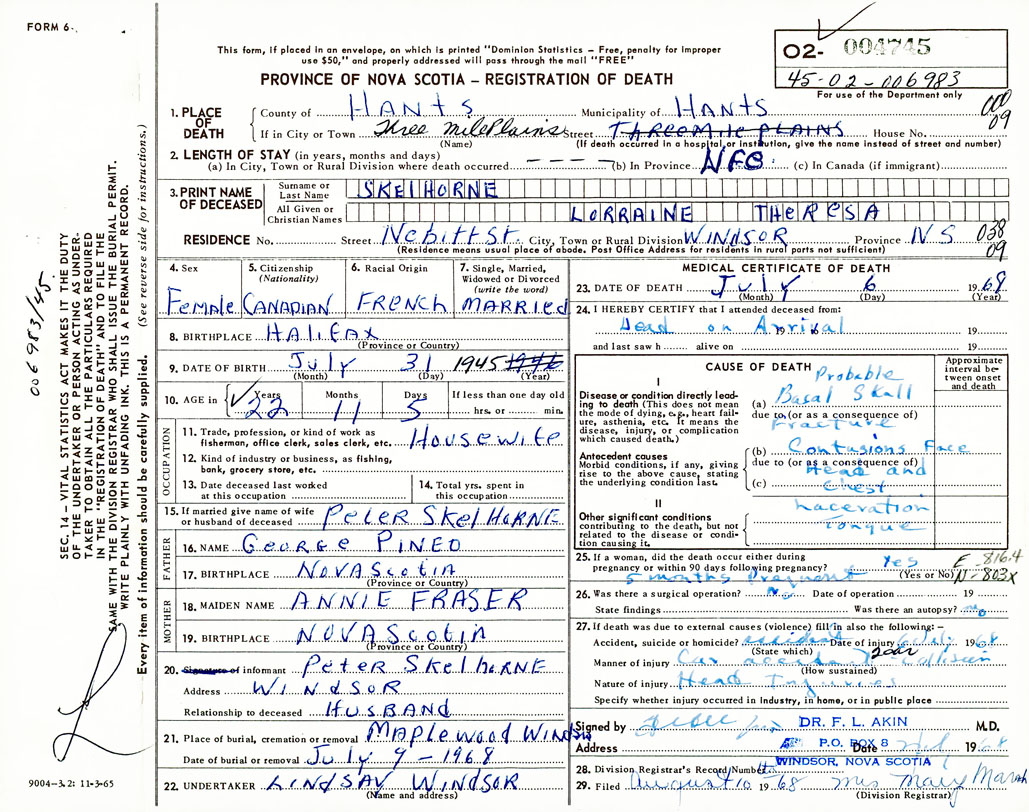 FORM 6
This form, if placed in an envelope, on which is printed "Dominion Statistics – Free, penalty for improper
use $50," and properly addressed will pass through the mail "FREE"
02- 004745
PROVINCE OF NOVA SCOTIA – REGISTRATION OF DEATH
45-02-006983
For use of the Department only
1. PLACE OF DEATH
County of HANTS Municipality of HANTS
000
09
If in City or Town Three Mile Plains Street THREE Mile PLAINS House No.
(Name) (If death occurred in a hospital or institution, give the name instead of street and number)
2. LENGTH OF STAY (in years, months and days)
(a) In City, Town or Rural Division where death occurred – – – – (b) In Province (c) In Canada (if immigrant)
3. PRINT NAME OF DECEASED
Surname or Last Name SKElHORNE
All Given or Christian Names LORRAINE THERESA
RESIDENCE No. Street NebittSt. City, Town or Rural Division WINDSOR Province NS
038
09
(Residence means usual place of abode. Post Office Address for residents in rural parts not sufficient)
4. Sex
Female
5. Citizenship
(Nationality)
CANADIAN
6. Racial Origin
FRENCH
7. Single, Married,
Widowed or Divorced
(write the word)
MARRIED
8. BIRTHPLACE HALIFAX
(Province or Country)
9. DATE OF BIRTH July 31 1945 1946
(Month) (Day) (Year)
10. AGE in Years Months Days If less than one day old
22 11 5 hrs. or min.
OCCUPATION
11. Trade, profession, or kind of work as
fisherman, office clerk, sales clerk, etc. Housewife
12. Kind of industry or business, as fishing,
bank, grocery store, etc.
13. Date deceased last worked
at this occupation
14. Total yrs. spent in
this occupation
15. If married give name of wife
or husband of deceased PETER SKElHORNE
FATHER
16. NAME GEORGE PINEO
17. BIRTHPLACE NOVA Scotia
(Province or Country)
MOTHER
18. MAIDEN NAME ANNIE FRASER
19. BIRTHPLACE NOVA Scotia
(Province or Country)
20. Signature of informant PeteR SKelhoRNE
Address WINDSOR
Relationship to deceased HUSBAND
21. Place of burial, cremation or removal MAPlewood WINDSOR
Date of burial or removal July 9 – 1968
22. UNDERTAKER LINDSAY WINDSOR
(Name and address)
MEDICAL CERTIFICATE OF DEATH
23. DATE OF DEATH July 6 1968
(Month) (Day) (Year)
24. I HEREBY CERTIFY that I attended deceased from:
Dead on Arrival 19
and last saw h alive on 19
CAUSE OF DEATH
Approximate
interval be-
tween onset
and death
I
Disease or condition directly lead-
ing to death (This does not mean
the mode of dying, e.g., heart fail-
ure, asthenia, etc. It means the
disease, injury, or complication
which caused death.)
Probable
(a) Basal Skull
due to (or as a consequence of)
Fracture
Antecedent causes
Morbid conditions, if any, giving
rise to the above cause, stating
the underlying condition last.
(b) Contusions Face
due to (or as a consequence of)
Head and
(c) Chest
II
Other significant conditions
contributing to the death, but not
related to the disease or condi-
tion causing it.
Laceration
Tongue
25. If a woman, did the death occur either during
pregnancy or within 90 days following pregnancy? Yes
(Yes or No)
E-816.4
N-803X
5 months Pregnant
26. Was there a surgical operation? No Date of operation 19
State findings Was there an autopsy? no
27. If death was due to external causes (violence) fill in also the following:–
Accident, suicide or homicide? accident Date of injury 6 July 1968
(State which)
Manner of injury Car accident 2 car Collision
(How sustained)
Nature of injury Head Injuries
Specify whether injury occurred in Industry, in home, or in public place
Signed by DR. F. L. AKIN M.D.
Address P.O. BOX 8 Date 1968
WINDSOR, NOVA SCOTIA
28. Division Registrar's Record Number
29. Filed August 10 1968 Mrs Mary Marsh
(Division Registrar)
9004-3.2: 11-3-65
SEC. 14 – VITAL STATISTICS ACT MAKES IT THE DUTY
OF THE UNDERTAKER OR PERSON ACTING AS UNDER-
TAKER TO OBTAIN ALL THE PARTICULARS REQUIRED
IN THE "REGISTRATION OF DEATH" AND TO FILE THE
SAME WITH THE DIVISION REGISTRAR WHO SHALL ISSUE THE BURIAL PERMIT.
WRITE PLAINLY WITH UNFADING INK. THIS IS A PERMANENT RECORD.
Every item of information should be carefully supplied. (See reverse side for instructions.)
006983/45.